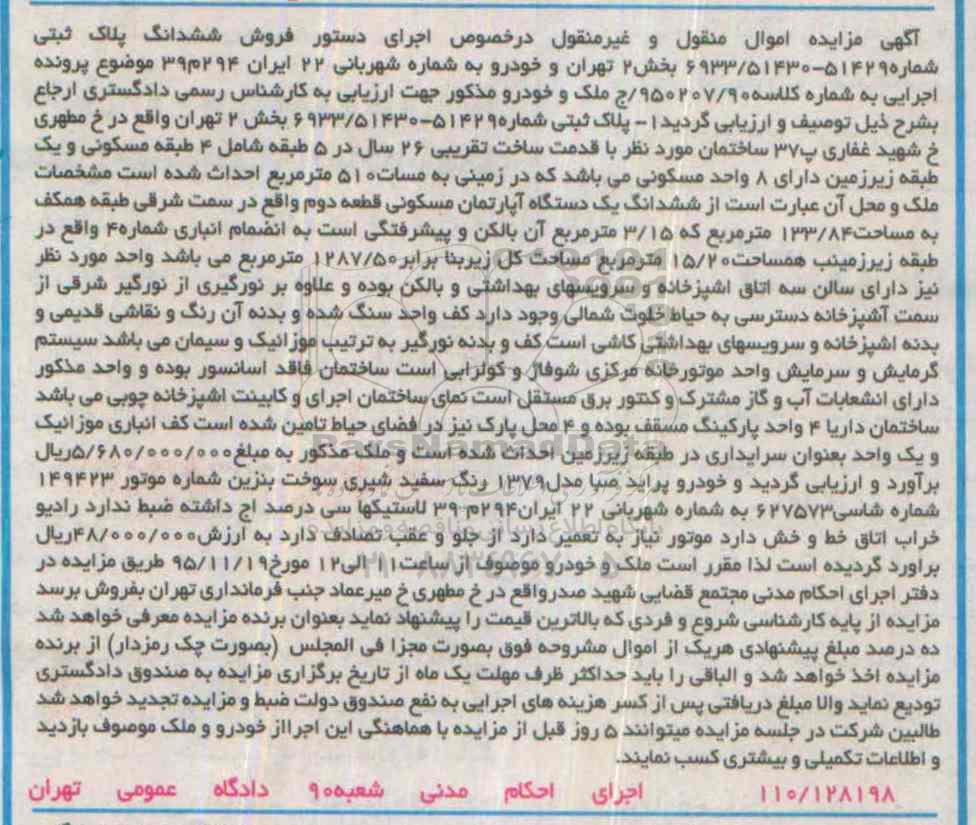 آگهی مزایده اموال منقول و غیرمنقول درخصوص اجرای دستور فروش ششدانگ پلاک ثبتی
شماره۵۱۴۲۹-۶۹۳۳/۵۱۴۳۰ بخش۲ تهران و خودرو به شماره شهربانی ۲۲ ایران ۲۹۴م۳۹ موضوع پرونده
اجرایی به شماره کلاسه۹۵۰۲۰۷/۹۰/ج ملک و خودرو مذکور جهت ارزیابی به کارشناس رسمی دادگستری ارجاع
بشرح ذیل توصیف و ارزیابی گردید۱- پلاک ثبتی شماره۵۱۴۲۹-۶۹۳۳/۵۱۴۳۰ بخش ۲ تهران واقع در خ مطهری
خ شهید غفاری پ۳۷ ساختمان مورد نظر با قدمت ساخت تقریبی ۲۶ سال در ۵ طبقه شامل ۴ طبقه مسکونی و یک
طبقه زیرزمین دارای ۸ واحد مسکونی می باشد که در زمینی به مسات۵۱۰ مترمربع احداث شده است مشخصات
ملک و محل آن عبارت است از ششدانگ یک دستگاه آپارتمان مسکونی قطعه دوم واقع در سمت شرقی طبقه همکف
به مساحت۱۳۳/۸۴ مترمربع که ۳/۱۵ مترمربع آن بالکن و پیشرفتگی است به انضمام انباری شماره۴ واقع در
طبقه زیرزمینب همساحت۱۵/۲۰ مترمربع مساحت کل زیربنا برابر۱۲۸۷/۵۰ مترمربع می باشد واحد مورد نظر
نیز دارای سالن سه اتاق اشپزخانه و سرویسهای بهداشتی و بالکن بوده و علاوه بر نورگیری از نورگیر شرقی از
سمت آشپزخانه دسترسی به حیاط خلوت شمالی وجود دارد کف واحد سنگ شده و بدنه آن رنگ و نقاشی قدیمی و
بدنه اشپزخانه و سرویسهای بهداشتی کاشی است کف و بدنه نورگیر به ترتیب موزائیک و سیمان می باشد سیستم
گرمایش و سرمایش واحد موتورخانه مرکزی شوفاژ و کولرابی است ساختمان فاقد اسانسور بوده و واحد مذکور
دارای انشعابات آب و گاز مشترک و کنتور برق مستقل است نمای ساختمان اجرای و کابینت اشپزخانه چوبی می باشد
ساختمان داریا ۴ واحد پارکینگ مسقف بوده و ۴ محل پارک نیز در فضای حیاط تامین شده است کف انباری موزائیک
و یک واحد بعنوان سرایداری در طبقه زیرزمین احداث شده است و ملک مذکور به مبلغ۵/۶۸۰/۰۰۰/۰۰۰ریال
برآورد و ارزیابی گردید و خودرو پراید صبا مدل۱۳۷۹ رنگ سفید شیری سوخت بنزین شماره موتور ۱۴۹۴۲۳
شماره شاسی۶۲۷۵۷۳ به شماره شهربانی ۲۲ ایران۲۹۴م۳۹ لاستیکها سی درصد اج داشته ضبط ندارد رادیو
خراب اتاق خط و خش دارد موتور نیاز به تعمیر دارد از جلو و عقب تصادف دارد به ارزش۴۸/۰۰۰/۰۰۰ریال
براورد گردیده است لذا مقرر است ملک و خودرو موصوف از ساعت۱۱ الی۱۲ مورخ۹۵/۱۱/۱۹ طریق مزایده در
دفتر اجرای احکام مدنی مجتمع قضایی شهید صدرواقع در خ مطهری خ میرعماد جنب فرمانداری تهران بفروش برسد
مزایده از پایه کارشناسی شروع و فردی که بالاترین قیمت را پیشنهاد نماید بعنوان برنده مزایده معرفی خواهد شد
ده درصد مبلغ پیشنهادی هریک از اموال مشروحه فوق بصورت مجزا فی المجلس (بصورت چک رمزدار) از برنده
مزایده اخذ خواهد شد و الباقی را باید حداکثر ظرف مهلت یک ماه از تاریخ برگزاری مزایده به صندوق دادگستری
تودیع نماید والا مبلغ دریافتی پس از کسر هزینه های اجرایی به نفع صندوق دولت ضبط و مزایده تجدید خواهد شد
طالبین شرکت در جلسه مزایده میتوانند ۵ روز قبل از مزایده با هماهنگی این اجرااز خودرو و ملک موصوف بازدید
و اطلاعات تکمیلی و بیشتری کسب نمایند.
۱۱۰/۱۲۸۱۹۸ اجرای احکام مدنی شعبه۹۰ دادگاه عمومی تهران
ParsNamadData